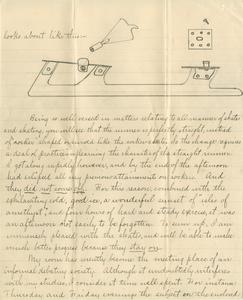 looks about like this:-
Being so well versed in matters relating to all manners of skates
and skating, you will see that the runner is perfectly straight, instead
of rocker shaped or curved like the rocker skate. So the change requires
a deal of practice in learning the character of the straight runner.
I got along rapidly however, and by the end of the afternoon
had eclipsed all my previous attainments on rockers. And
they did not come off. For this reason, combined with the
exhilarating cold, good ice, a wonderful sunset of isles of
amethyst, and four hours of hard and steady exercise, it was
an afternoon not easily to be forgotten. To sum up, I am
immensely pleased with the skates, and will be able to make
much better progress because they stay on.
My room has recently become the meeting place of an
informal debating society. Although it undoubtedly interferes
with my studies, I consider it time well spent. For instance
Thursday and Friday evenings the subject on the